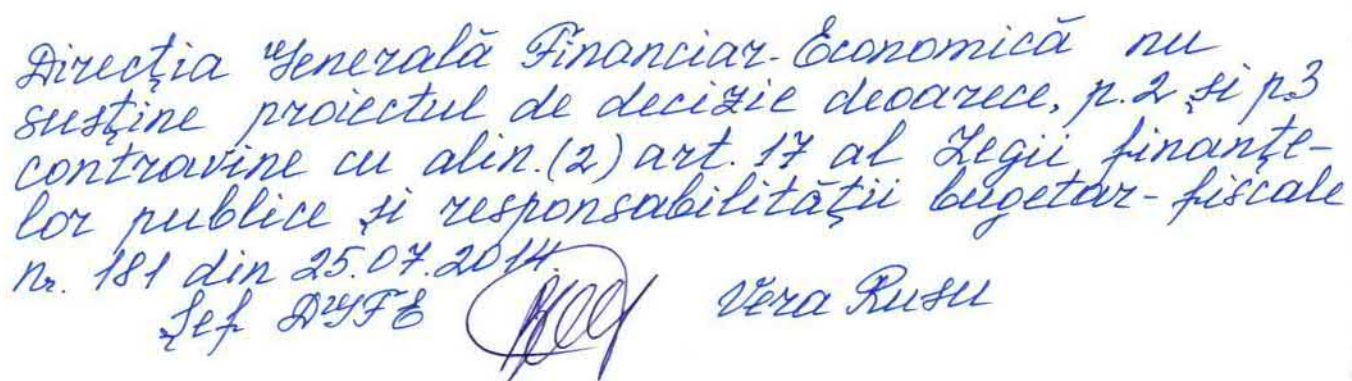 Direcția Generală Financiar-Economică nu
susține proiectul de decizie deoarece, p.2 și p.3
contravine cu alin.(2) art. 17 al Legii finanțe-
lor publice și responsabilității bugetar-fiscale
nr. 181 din 25.07.2014.
Șef DGFE Vera Rusu